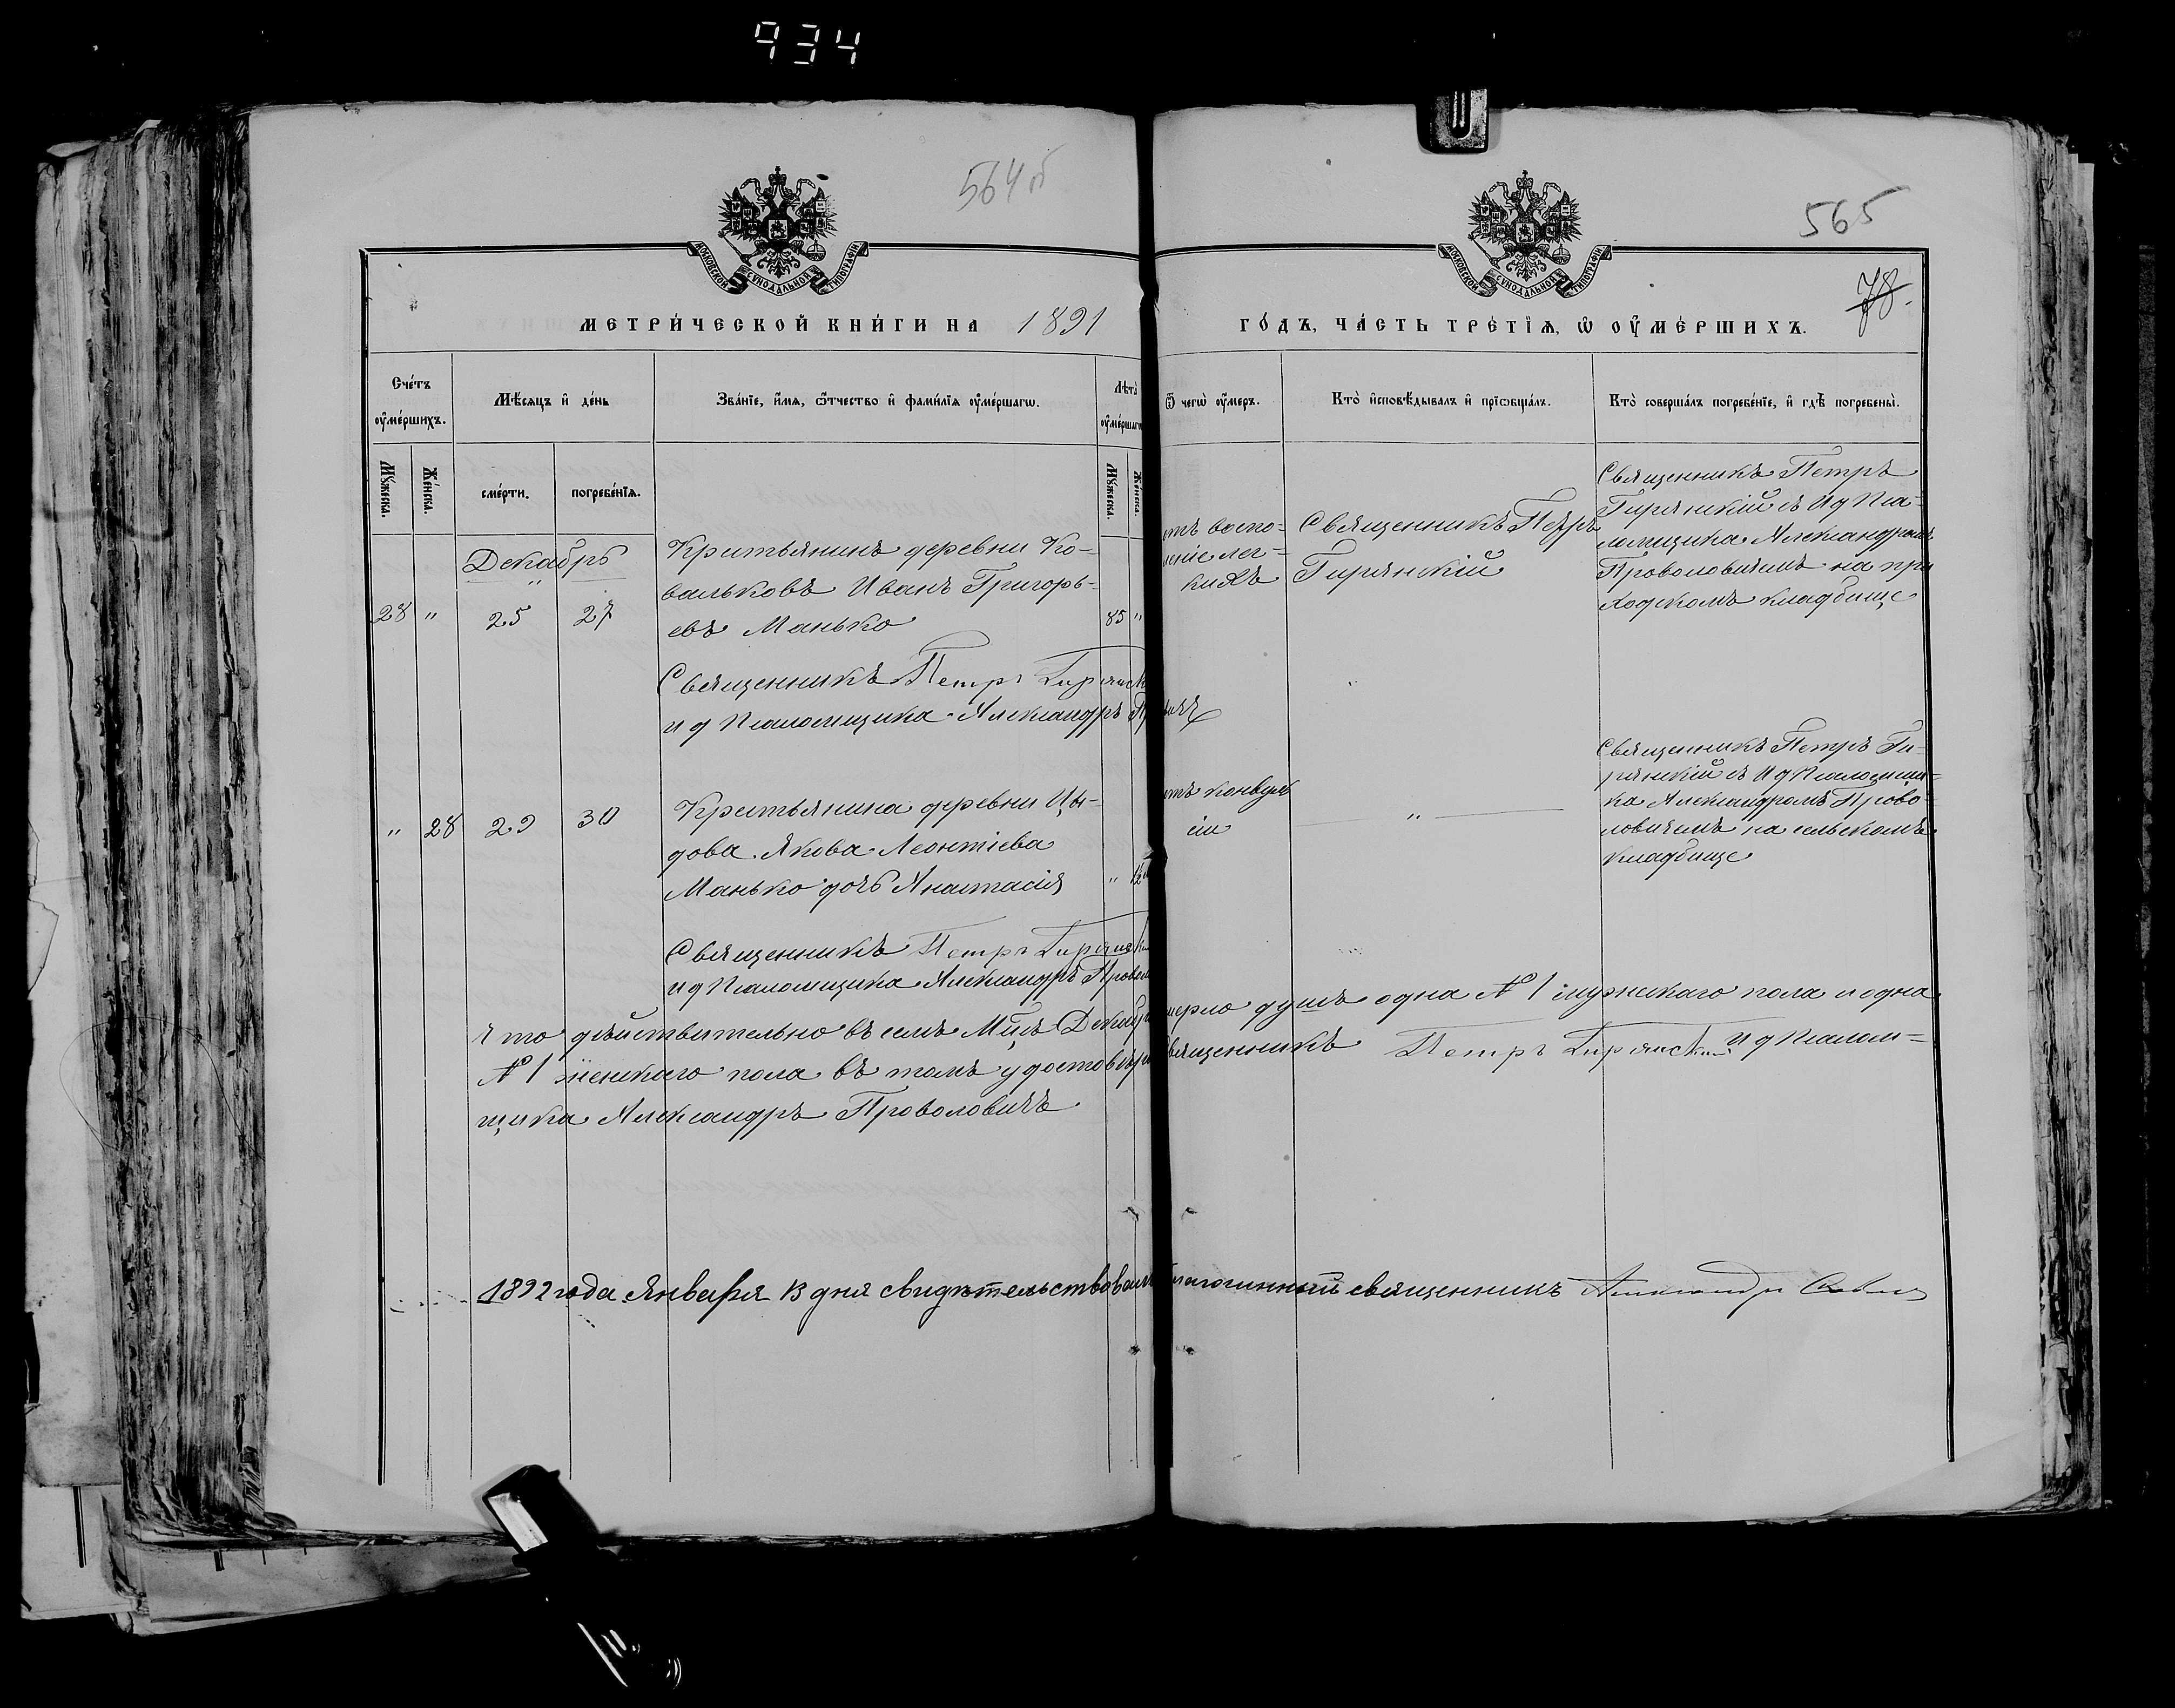 934
564 об
565
78.
МОСКОВСКОЙ СѴНОДАЛЬНОЙ ТИПОГРАФІИ
МОСКОВСКОЙ СѴНОДАЛЬНОЙ ТИПОГРАФІИ
МЕТРИ́ЧЕСКОЙ КНИ́ГИ НА 1891
ГО́ДЪ, ЧА́СТЬ ТРЕ́ТІѦ, Ѡ ОУ҆МЕ́РШИХЪ.
Сче́тъ
оу҆ме́ршихъ.
Мѣ́сяцъ и҆ де́нь
Зва́нїе, и҆́мѧ, ѻ҆́тчество и҆ фами́лїѧ оу҆ме́ршагѡ.
Лѣта̀
оу҆ме́ршагѡ
Ѿ чегѡ̀ оу҆́меръ.
Кто̀ и҆сповѣ́дывалъ и҆ прїѡбща́лъ.
Кто̀ соверша́лъ погребе́нїе, и҆ гдѣ̀ погребены̀.
Мꙋ́жеска.
Же́нска.
сме́рти.
погребе́нїѧ.
Мꙋ́жеска.
Же́нска.
Декабрь
28 " 25 27
Крестьянинъ деревни Ко-
вальковъ Иванъ Григорь-
евъ Манько
85 "
отъ воспо-
леніе лег-
кихъ
Священникъ Петръ
Гирянскій
Священникъ Петръ
Гирянскій съ И д Пса-
ломщика Александромъ
Проволовичемъ на при
ходскомъ кладбище
Священникъ Петръ Гирянск
и д Псаломщика Александръ П вичъ
" 28 29 30
Крестьянина деревни Цы-
дова Якова Леонтіева
Манько дочь Анастасія
" 1/2
отъ конвул
сіи
"
Священникъ Петръ Ги-
рянскій съ И д Псаломщи-
ка Александромъ Прово-
ловичемъ на сельскомъ
кладбище
Священникъ Петръ Гирянскій
и д Псаломщика Александръ Провол
Что действительно въ семъ Мцѣ Декабр умерло душъ одна № 1 мужскаго пола и одна
№ 1 женскаго пола въ томъ удостовѣр Священникъ Петръ Гирянскій И д Псалом-
щика Александръ Проволовичъ
1892 года Января 13 дня свидѣтельствовалъ Благочинный священникъ Александръ